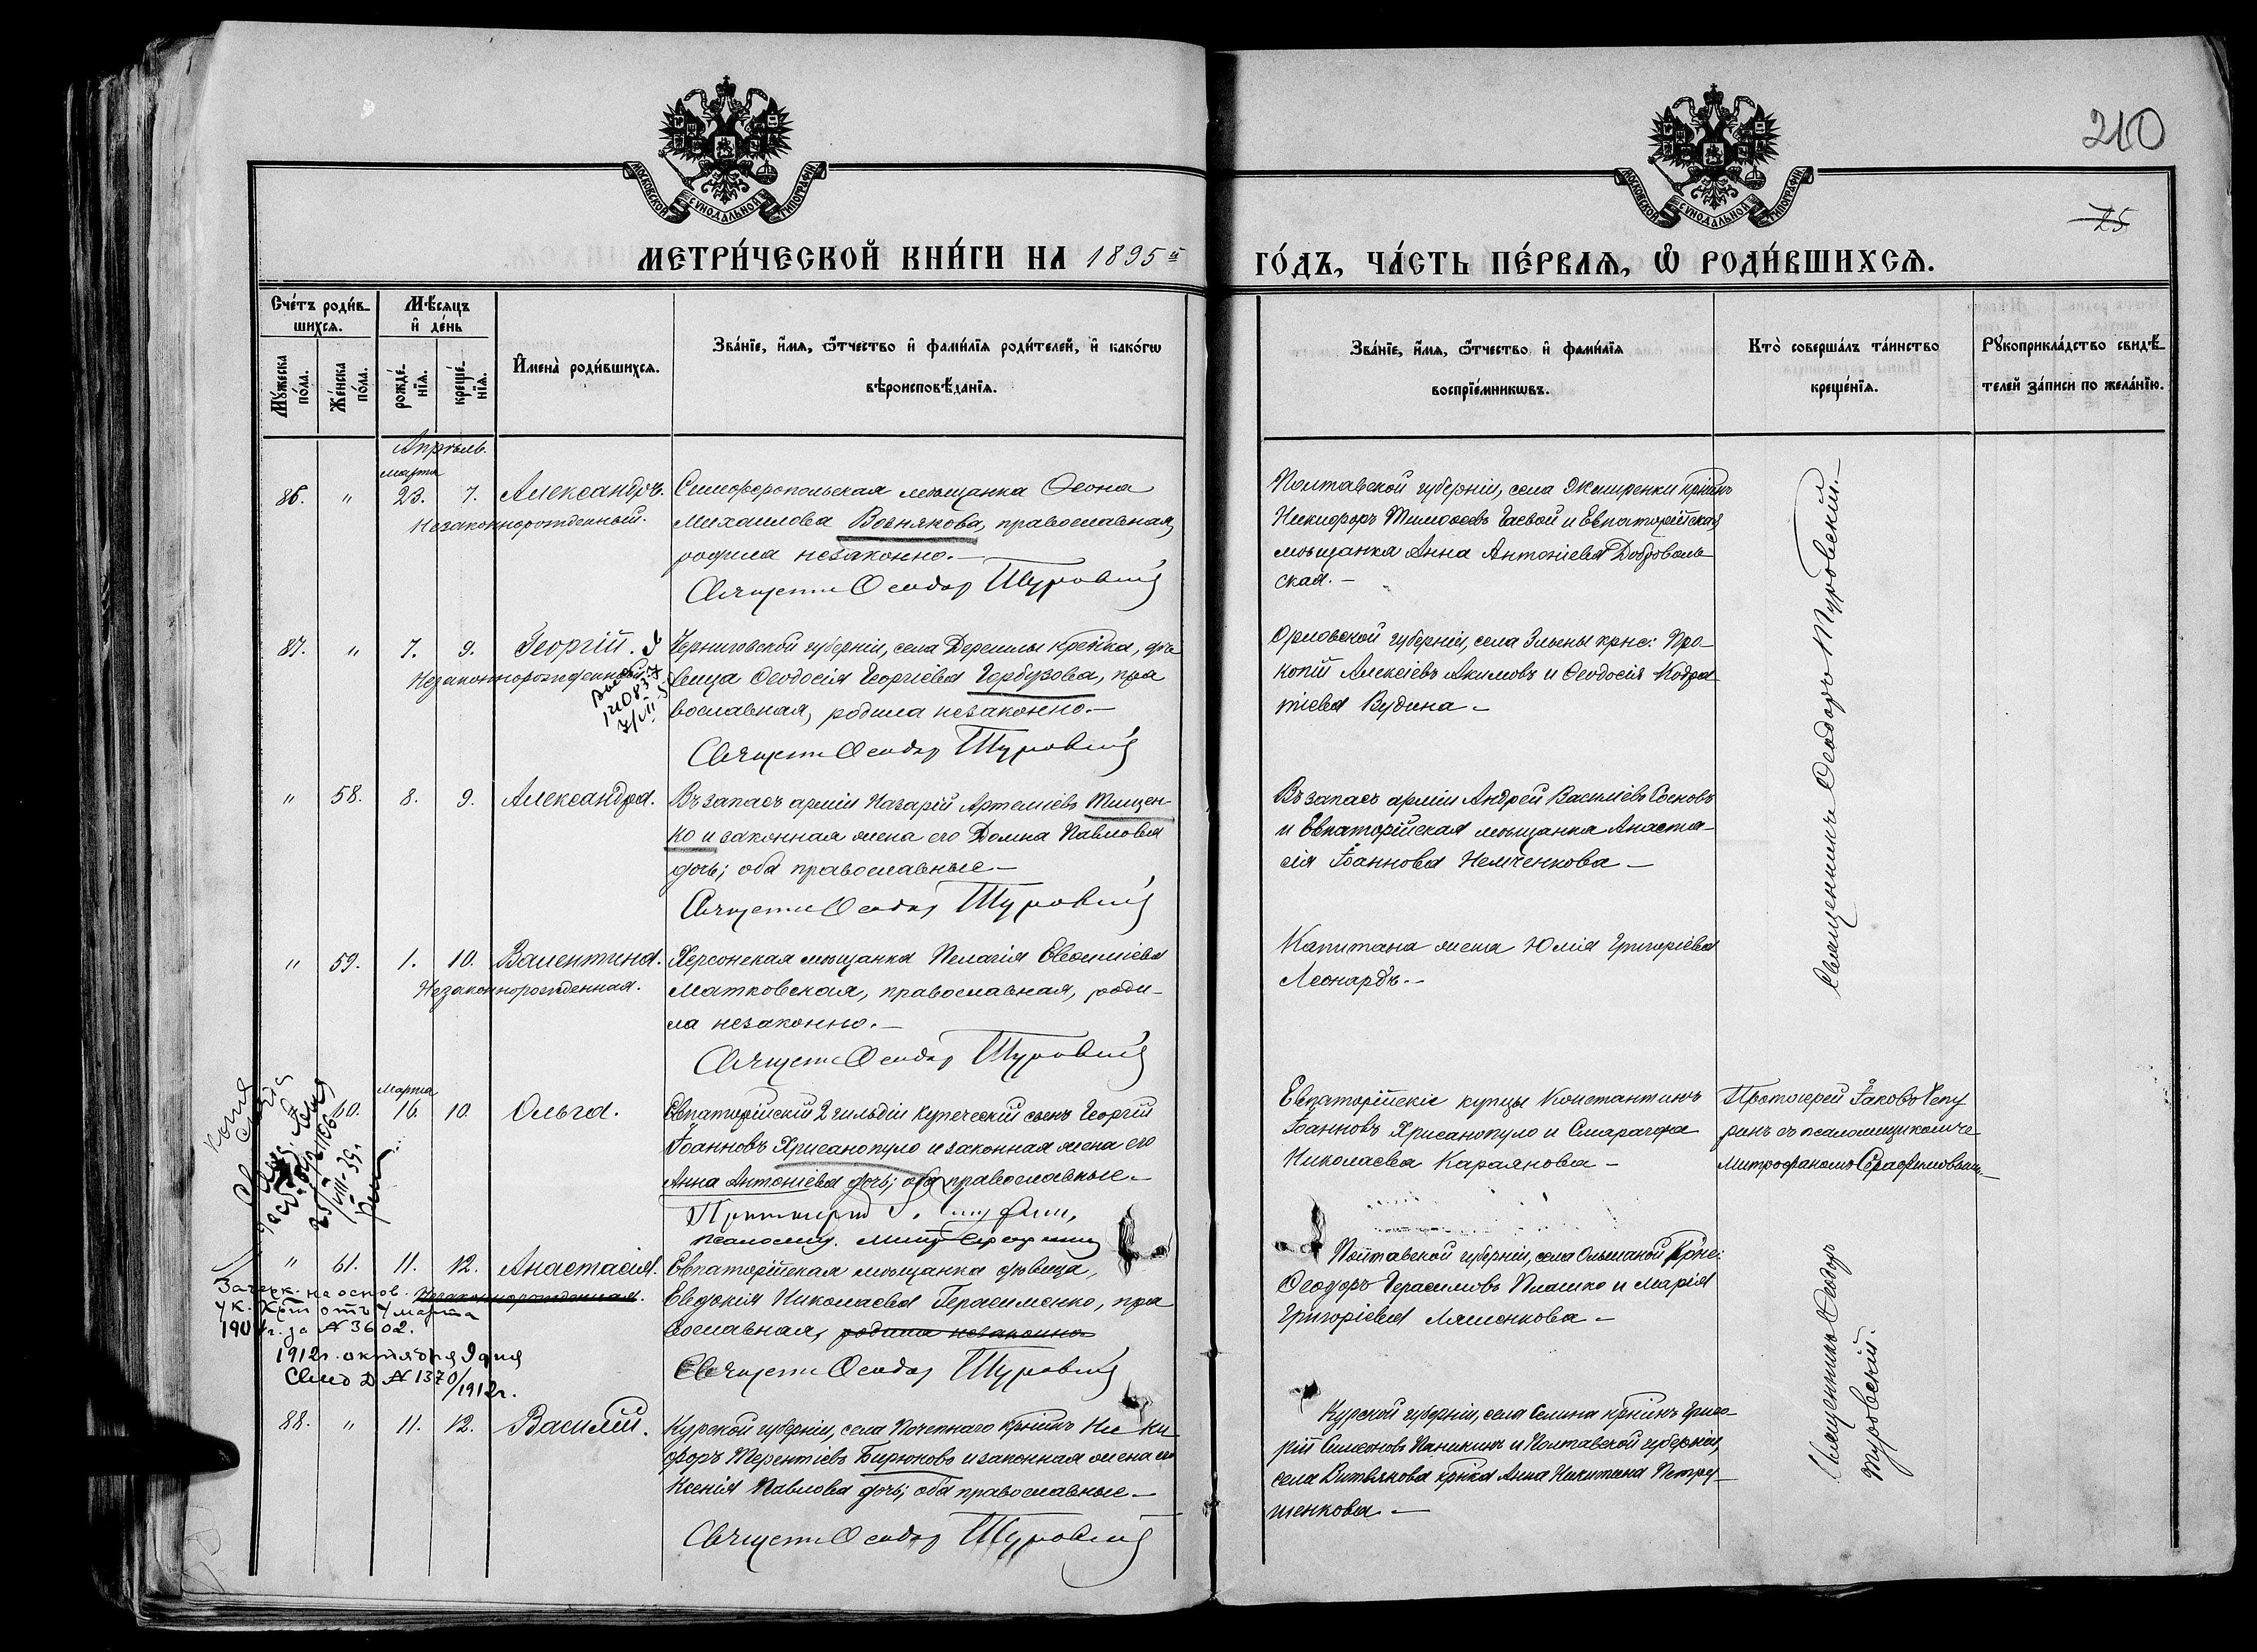 210
25
МОСКОВСКОЙ СѴНОДАЛЬНОЙ ТИПОГРАФІИ
МОСКОВСКОЙ СѴНОДАЛЬНОЙ ТИПОГРАФІИ
МЕТРИ́ЧЕСКОЙ КНИ́ГИ НА 1895й ГО́ДЪ, ЧА́СТЬ ПЕ́РВАѦ, Ѡ РОДИ́ВШИХСѦ.
Сче́тъ роди́в-
шихсѧ.
Мѣ́сѧцъ
и҆ де́нь
Мꙋ́жеска по́ла.
Же́нска по́ла.
рожде́-
нїѧ.
креще́-
нїѧ.
И҆мена̀ роди́вшихсѧ.
Зва́нїе, и҆́мѧ, ѻ҆́тчество и҆ фами́лїѧ роди́телей, и҆ како́гѡ
вѣроисповѣ́данїѧ.
Зва́нїе, и҆́мѧ, ѻ҆́тчество и҆ фами́лїѧ
воспрїе́мникѡвъ.
Кто̀ соверша́лъ та́инство
креще́нїѧ.
Рꙋкоприкла́дство свидѣ́-
телей за́писи по жела́нїю.
Апрѣль.
марта
86. " 23. 7. Александръ.
Незаконнорожденный.
Симферопольская мѣщанка Ѳеона
Михайлова Вознякова, православная,
родила незаконно.—
Священ. Ѳеодор Туровскій
Полтавской губерніи, села крнинъ
Никифоръ Тимоѳеевъ Гаевой и Евпаторійская
мѣщанка Анна Антоніева Доброволь-
ская.—
Священникъ Ѳеодоръ Туровскій.—
87. " 7. 9. Георгій.
Незаконнорожденный.
12083
7/VII
Черниговской губерніи, села крснка, дѣ-
вица Ѳеодосія Георгіева Гарбузова, пра
вославная, родила незаконно.—
Священ. Ѳеодор Туровскій
Орловской губерніи, села крнс: Про-
копій Алексіевъ Акимовъ и Ѳеодосія Кодра
тіева Вудина —
" 58. 8. 9. Александра.
Въ запасѣ арміи Назарій Артеміевъ Тищен-
ко и законная жена его Домна Павлова
дочь; оба православные —
Священ. Ѳеодор Туровскій
Въ запасѣ арміи Андрей Василіевъ Сосновъ
и Евпаторійская мѣщанка Анаста-
сія Іоаннова Немченкова —
" 59. 1. 10. Валентина.
Незаконнорожденная.
Херсонская мѣщанка Пелагія Евѳиміева
Матковская, православная, роди-
ла незаконно.—
Священ. Ѳеодор Туровскій
Капитана жена Юлія Григоріева
Леонардъ.—
марта
60. 16. 10. Ольга.
Евпаторійскій 2 гильдіи купеческій сынъ Георгій
Іоанновъ Хрисанопуло и законная жена его
Анна Антоніева дочь; оба православные.—
Протоіерей
Псаломщ.
Евпаторійскіе купцы Константинъ
Іоанновъ Хрисанопуло и Смарагда
Николаева Караянова —
Протоіерей Іаковъ Чепу
ринъ съ псаломщикомъ
Митрофаномъ Серафимовым—
Копия
" 61. 11. 12. Анастасія.
Незаконнорожденная.
Зачерк. на основ.
ук. Хрт отъ 4 марта
1904г. за № 3602.
1912г. октября 9 дня
Свид. № 1370/1912г.
Евпаторійская мѣщанка дѣвица,
Евдокія Николаева Герасименко, пра
вославная, родила незаконно
Священ. Ѳеодор Туровскій
Полтавской губерніи, села Ольшаной крнс:
Ѳеодоръ Герасимовъ Плашко и Марія
Григоріева Ляшенкова —
Священникъ Ѳеодоръ
Туровскій.
88. " 11. 12. Василій.
Курской губерніи, села Почепнаго крнинъ Ники
форъ Терентіевъ Бирюковъ и законная жена его
Ксенія Павлова дочь; оба православные —
Священ. Ѳеодор Туровскій
Курской губерніи, села Селина крнинъ Григо-
рій Симеоновъ Паникинъ и Полтавской губерніи,
села Витвякова крнка Анна Никитина Петру-
шенкова.—